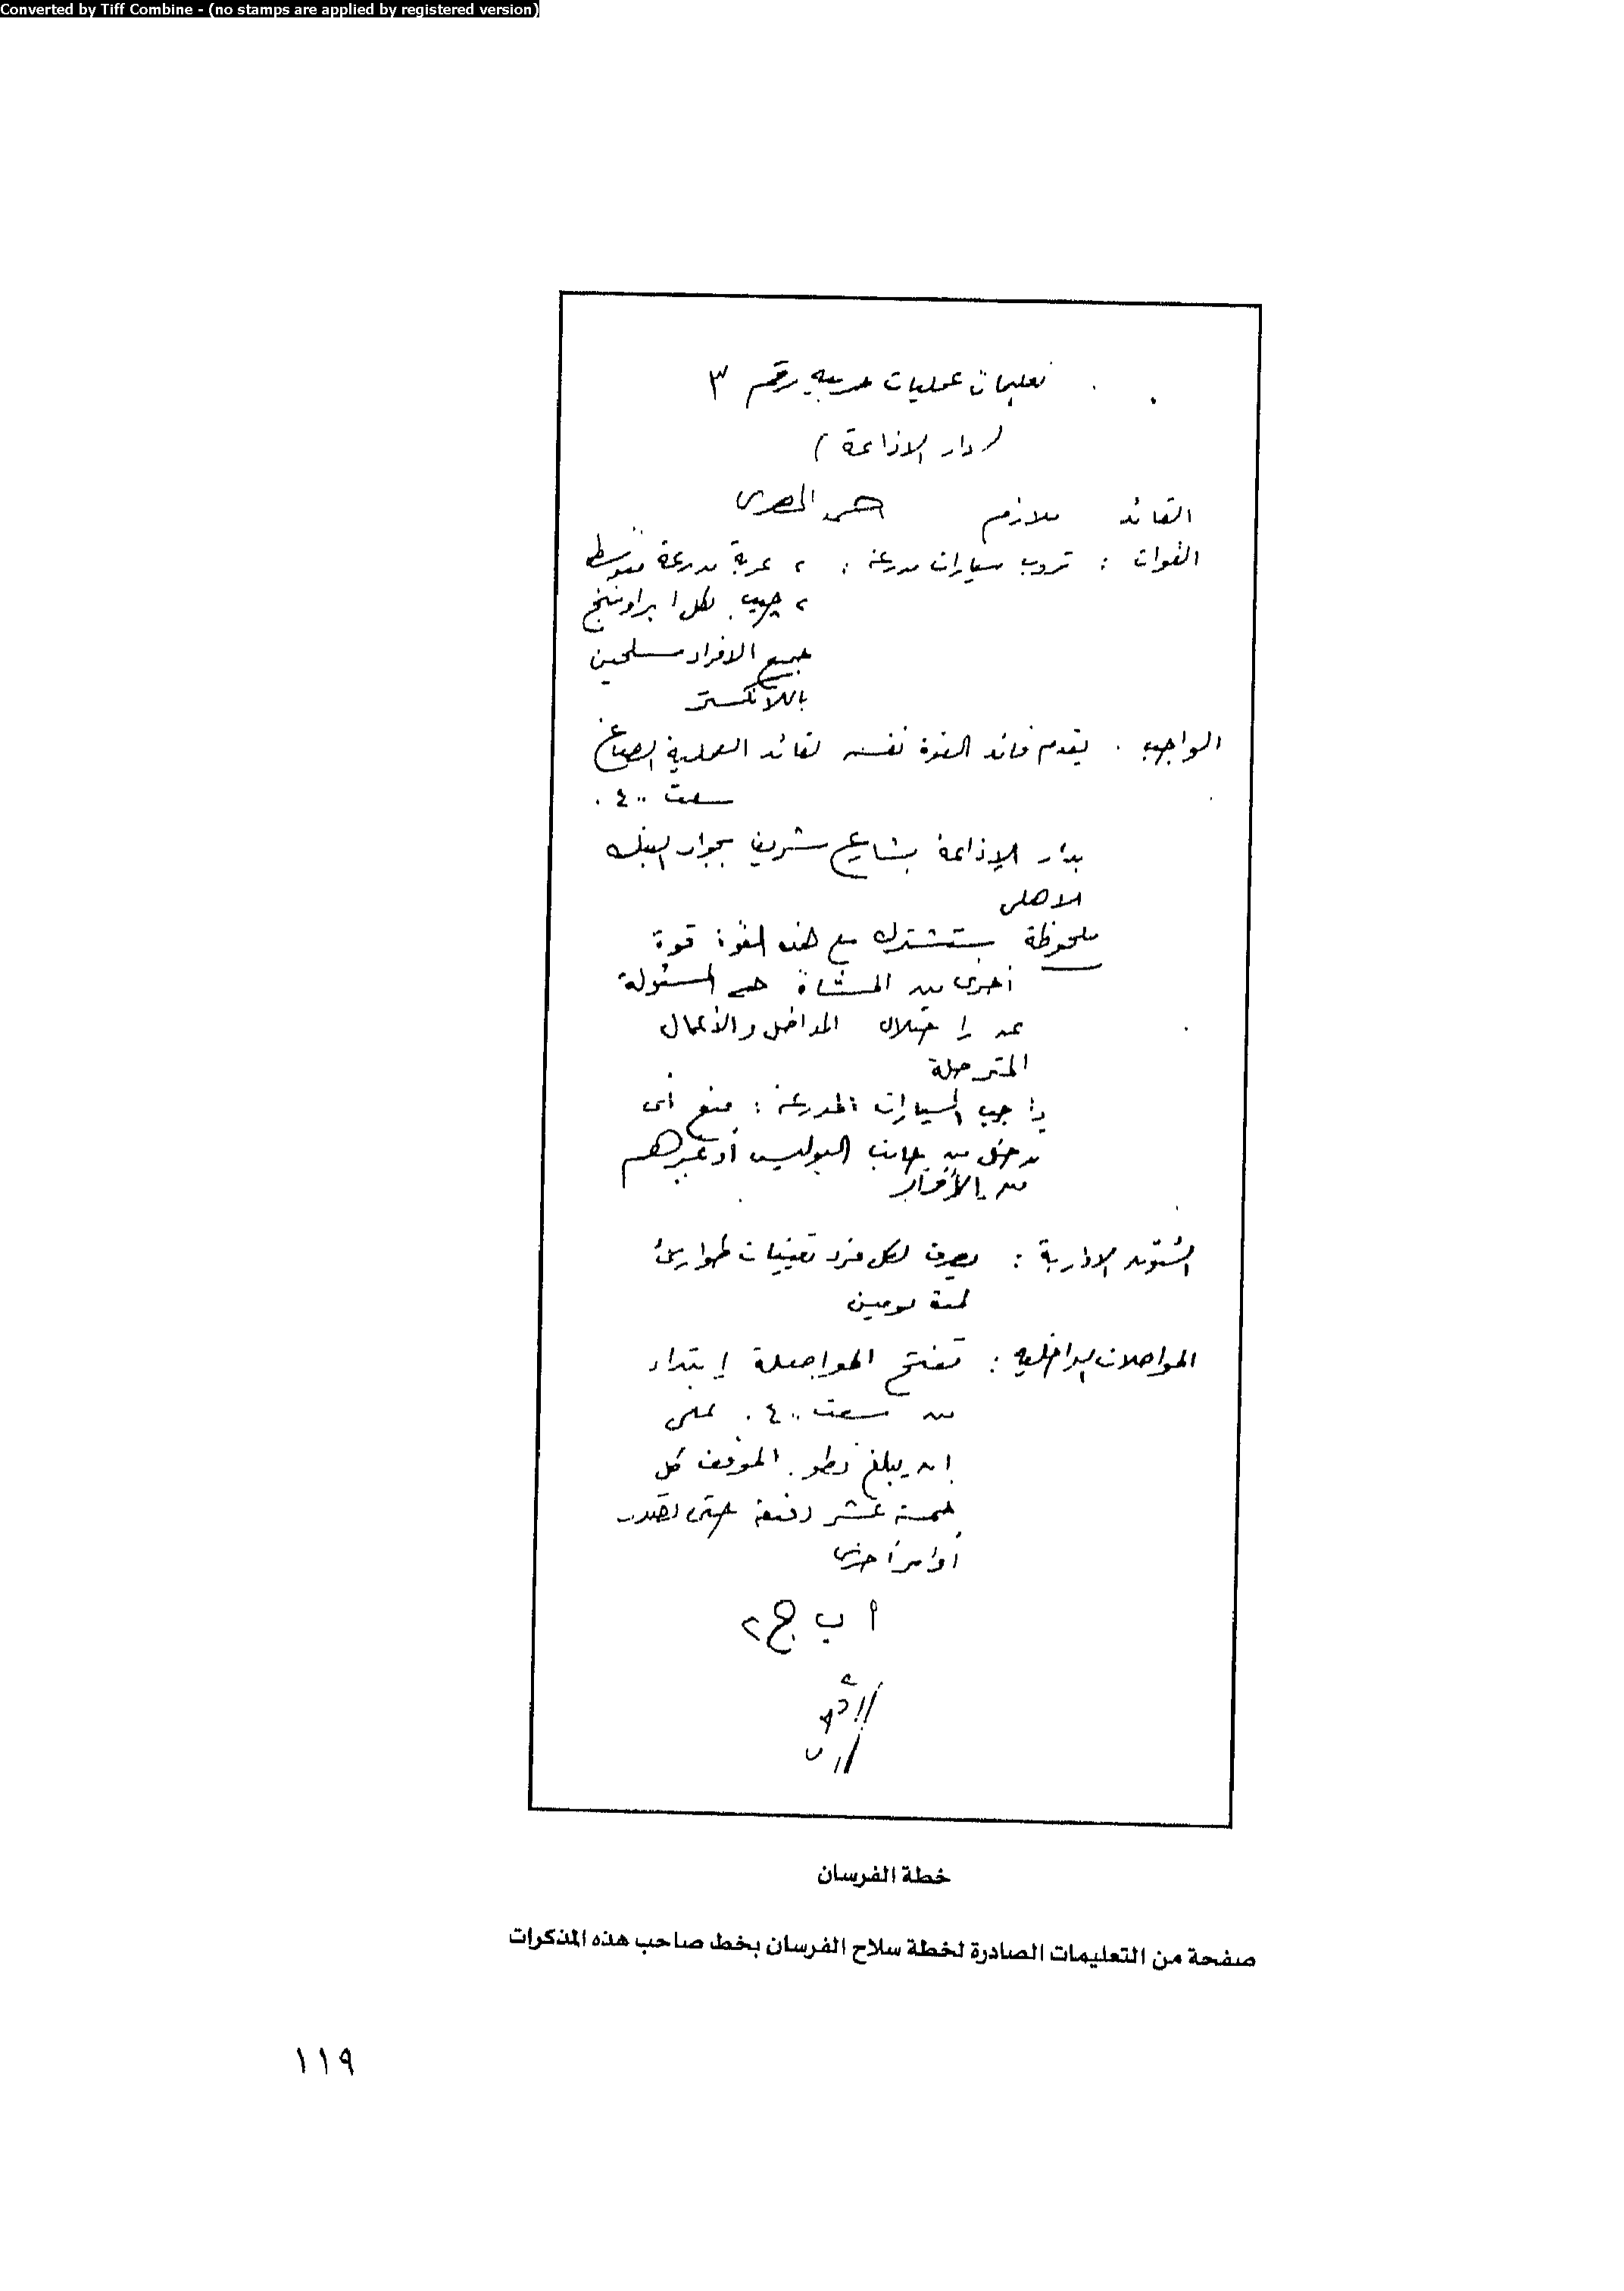 Converted by Tiff Combine - (no stamps are applied by registered version)
تعليمات عمليات حربية رقم ٣
(دار الاذاعة)
القائد ملازم المصرى
القوات : تروب سيارات مدرعة : ٢ عربة مدرعة متوسط
٢ جيب لكل ١ براوننج
جميع الافراد مسلحين
باللانكستر
الواجب . يقدم قائد القوة نفسه لقائد العملية الصاغ
سعت ٠٤٠٠
بدار الإذاعة بشارع شريف بجوار البنك
الاهلى
ملحوظة ستشترك مع هذه القوة قوة
أخرى من المشاة هى المسئولة
عن احتلال المداخل والأعمال
المترجلة
واجب السيارات المدرعة : منع أى
تدخل من جانب البوليس أو غيرهم
من الأفراد
الشئون الادارية : يصرف لكل فرد تعيينات طوارئ
لمدة يومين
المواصلات الداخلية : تفتح المواصلة إبتداء
من سعت ٠٤٠٠ على
ان يبلغ تطور الموقف كل
خمسة عشر دقيقة حتى تصدر
أوامر أخرى
أ ب ج ٢
خطة الفرسان
صفحة من التعليمات الصادرة لخطة سلاح الفرسان بخط صاحب هذه المذكرات
١١٩